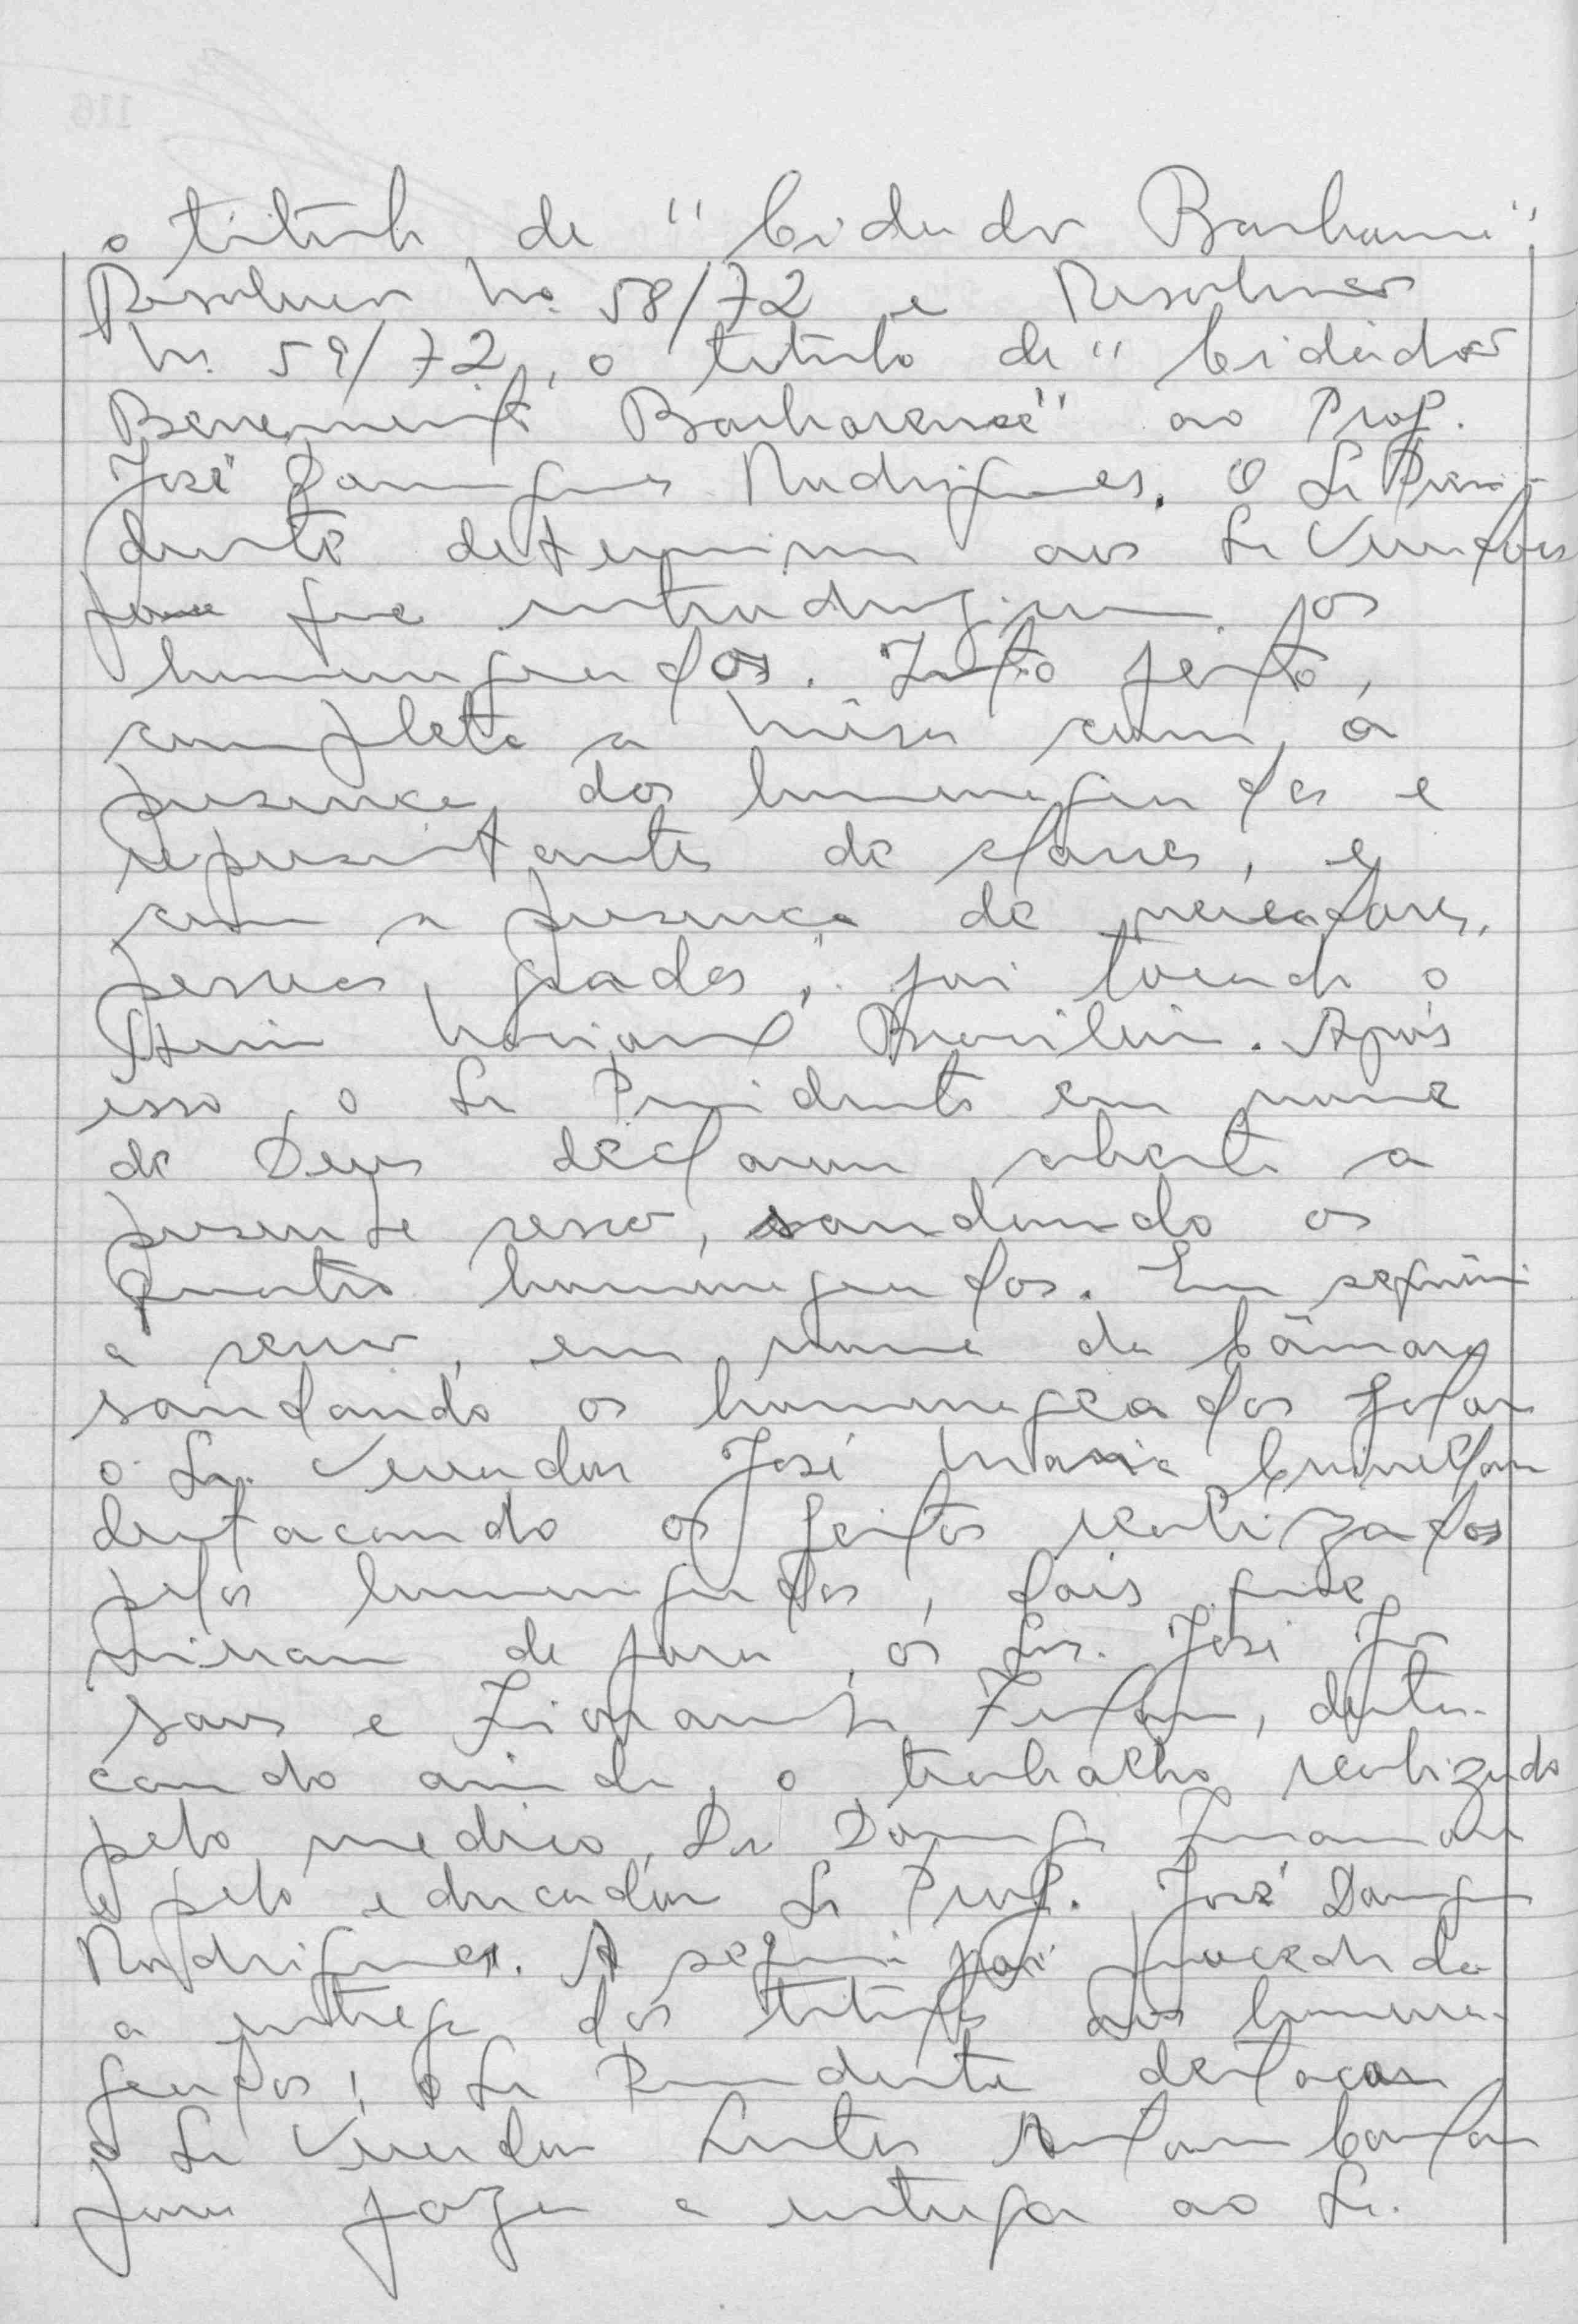 o titulo de "Cidadão Barbarense"
Resolução no. 58/72 e Resolução
no. 59/72, o titulo de "Cidadão
Benemerito Barbarense" ao Prof.
José Domingues Rodrigues. O Sr Presi-
dente determina aos Sr Vereadores
para que introduzissem os
homenageados. Isto feito,
completa a mêsa com a
presença dos homenageados e
representantes de classes, e
com a presença de vereadores,
pessoas gradas, foi tocado o
Hino Nacional Brasileiro. Após
isso o Sr Presidente em nome
de Deus declarou aberta a
presente sessão, saudando os
quatro homenageados. Em seguimento
a sessão, em nome da Câmara
saudando os homenageados falou
o Sr. Vereador José Maria
destacando os feitos realizados
pelos homenageados, dois que
vieram de fora, os Srs. José
e destа-
cando ainda, o trabalho realizado
pelo medico, Dr Domingos
e pelo educador Sr Prof. José Domingues
Rodrigues. A seguir foi procedida
a entrega dos titulos aos homena-
geados, o Sr Presidente destacou
o Sr Vereador
para fazer a entrega ao Sr.